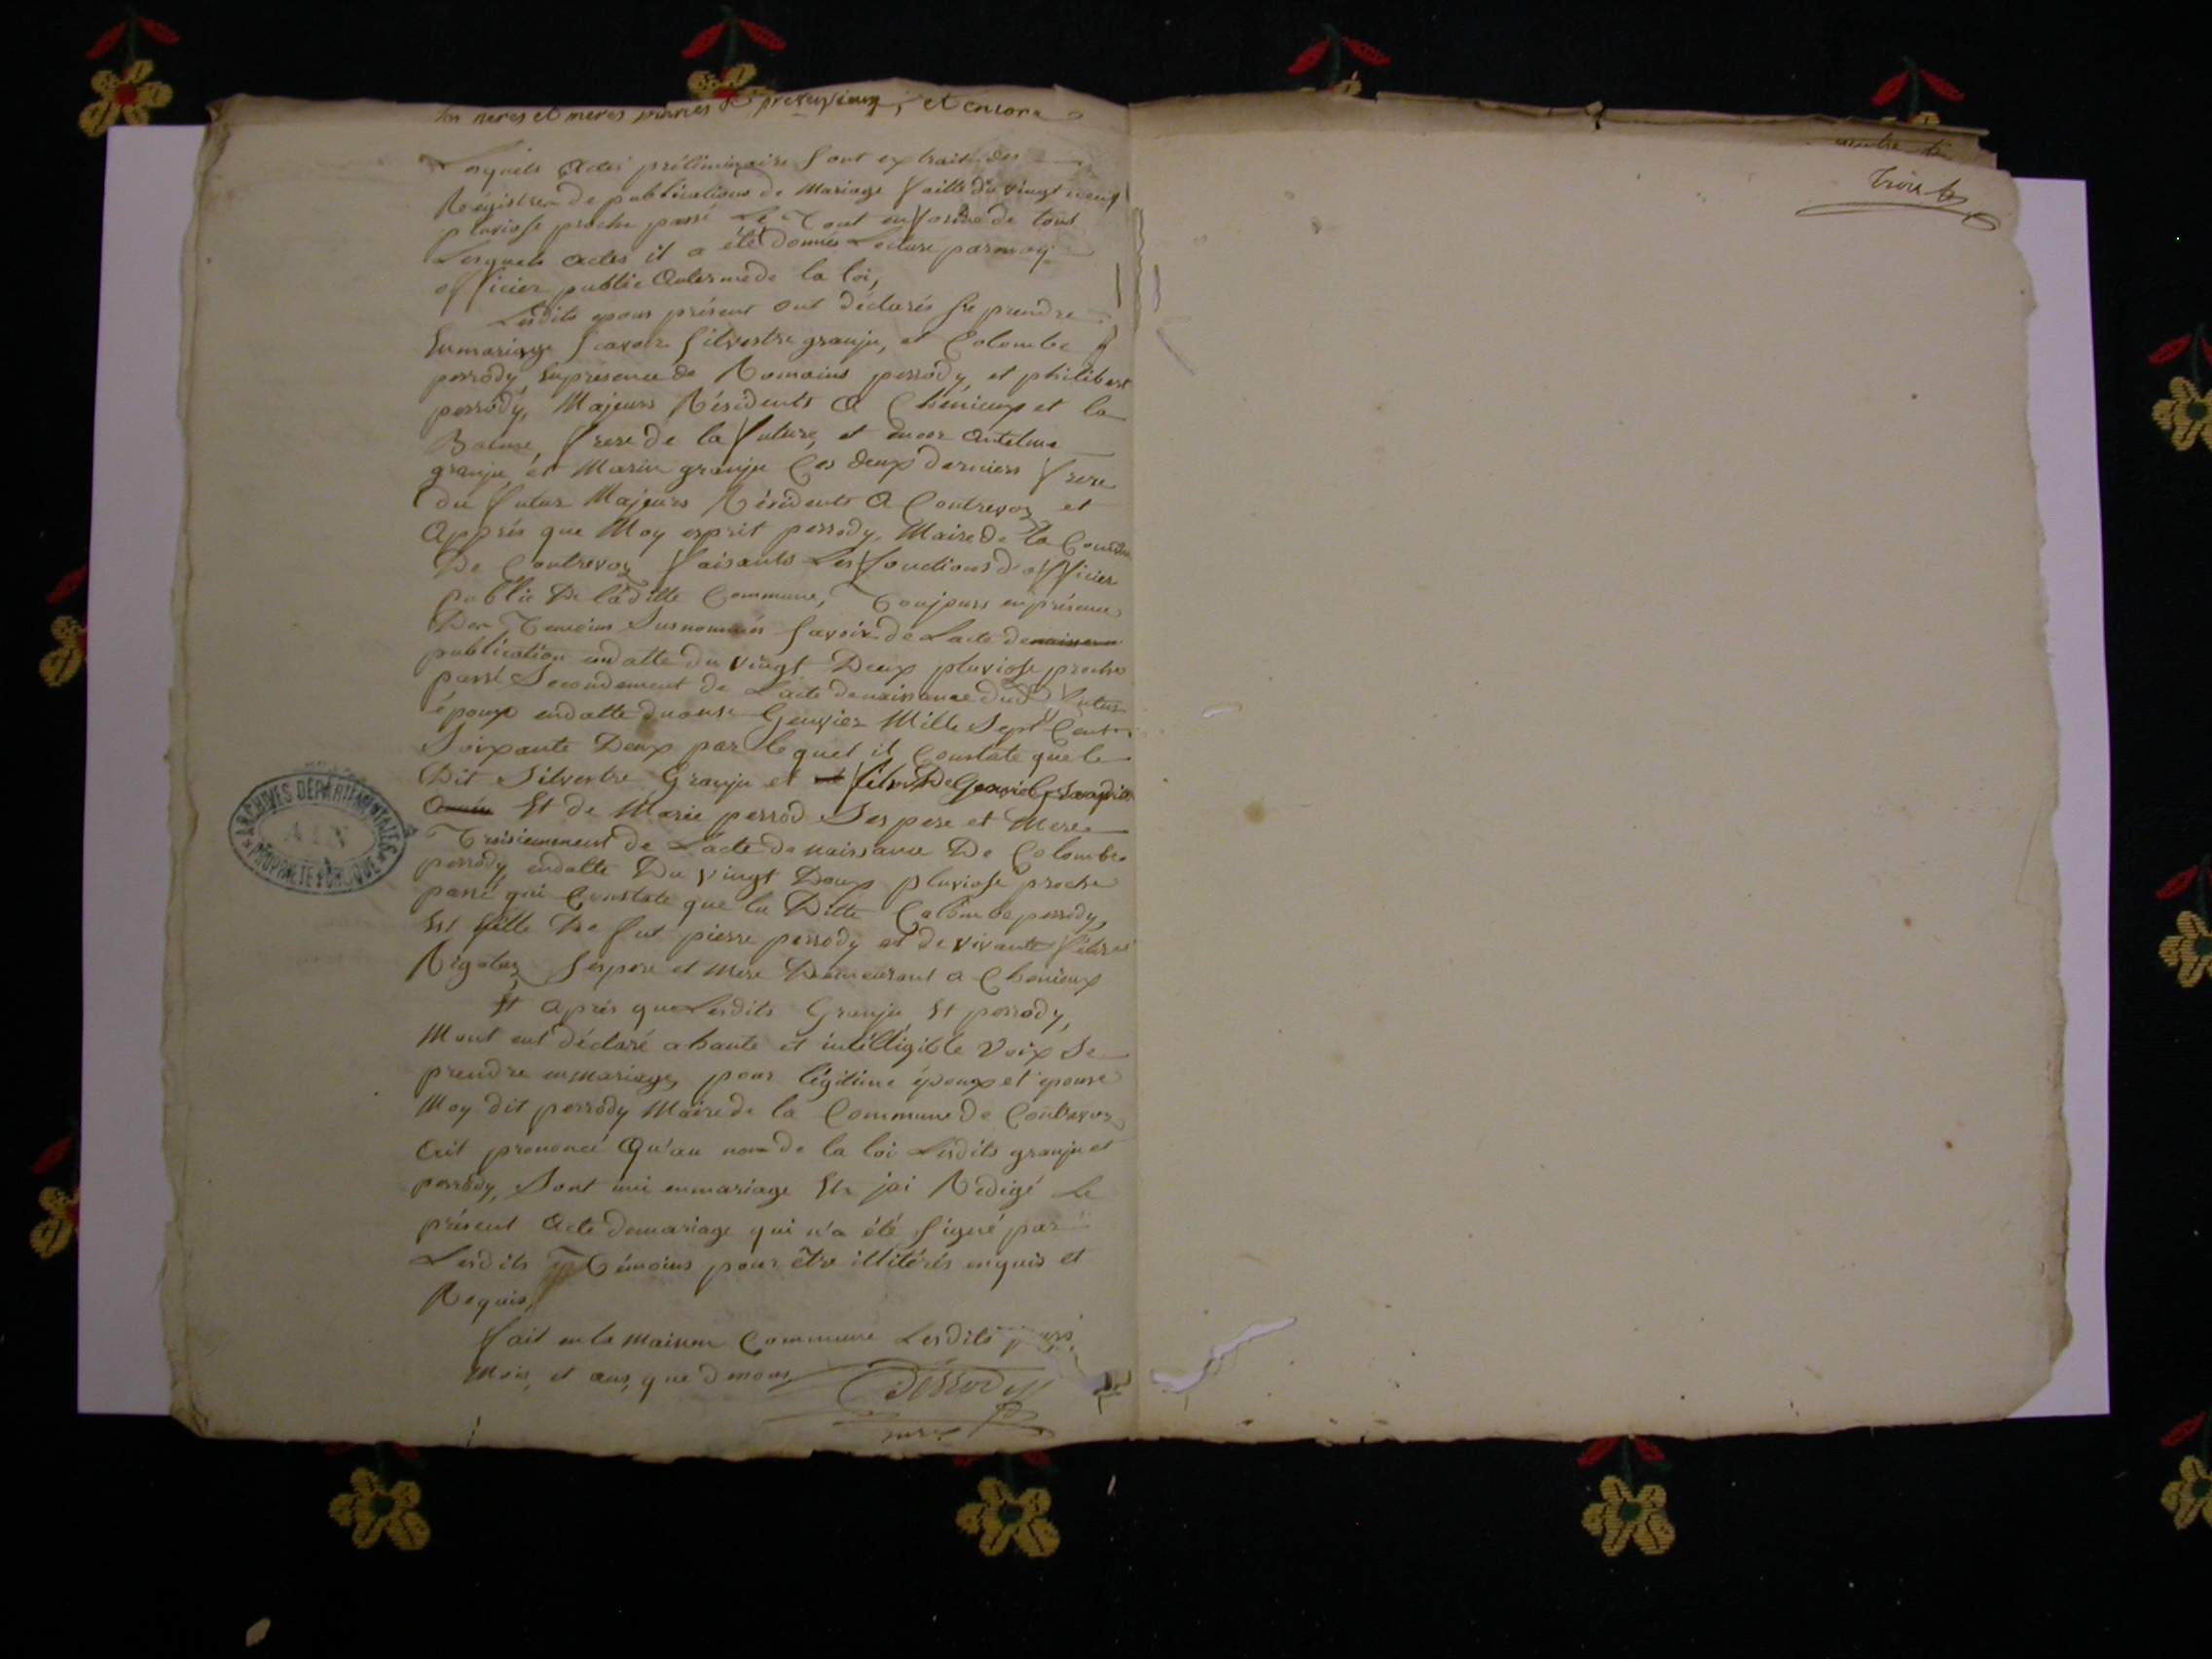 peres et meres et encore
Lesquels Actes préliminaire Sont extrait des
Régistres de publications de Mariage faitte du vingt neuf
pluviose proche passé Le Tout en forme de tout
Lesquels actes il a été donnés Lecture par moy
officier public Auterme de la loi,
Lesdits epoux présent ont déclarés se prendre
En mariage scavoir Silvestre granju, et Colombe
perrody, En présence de Romains perrody, et philibert
perrody, Majeurs Résidents a Chenieux et la
Balme, frere de la future, et encor Antelme
granju, et Marin granju Ces deux derniers frere
du futur Majeurs Résidents a Contrevoz et
Apprés que Moy esprit perrody, Maire de la Comune
De Contrevoz faisants Les fonctions d'officier
public De laditte Commune, Toujours en présence
Des Temoins Susnommés Savoir de Lacte de naissance
publication en datte du vingt Deux pluviose proche
passé Secondement de Lacte de naissance dud futur
époux en datte du onse Genvier Mille Sept Cent
Soixante Deux par lequel il Constate que le
Dit Silvestre Granju et fils De
Et de Marie perrod Ses pere et Mere
Troisiemement de Lacte de naissance De Colombe
perrody, en datte Du vingt Doux pluviose proche
passé qui Constate que la Ditte Colombe perrody,
Est fille De fut pierre perrody et de vivante
Rigolez Ses pere et Mere Demeurant a Chenieux
Et après que Lesdits Granju Et perrody,
Mont eut déclaré a haute et intelligible Voix Se
prendre en mariage, pour légitime époux et epouse
Moy dit perrody Maire de la Commune de Contrevoz
ait prononcé Qu'au nom de la loi Lesdits granju et
perrody, Sont uni en mariage Et jai Redigé Le
présent Acte de mariage qui n'a été signé par
Lesdits Témoins pour être illitérés enquis et
Requis,
fait en la maison Commune Lesdits jours
Mois, et ans, que dessus, Perrody
maire
ARCHIVES DÉPARTEMENTALES
AIN
PROPRIÉTÉ PUBLIQUE